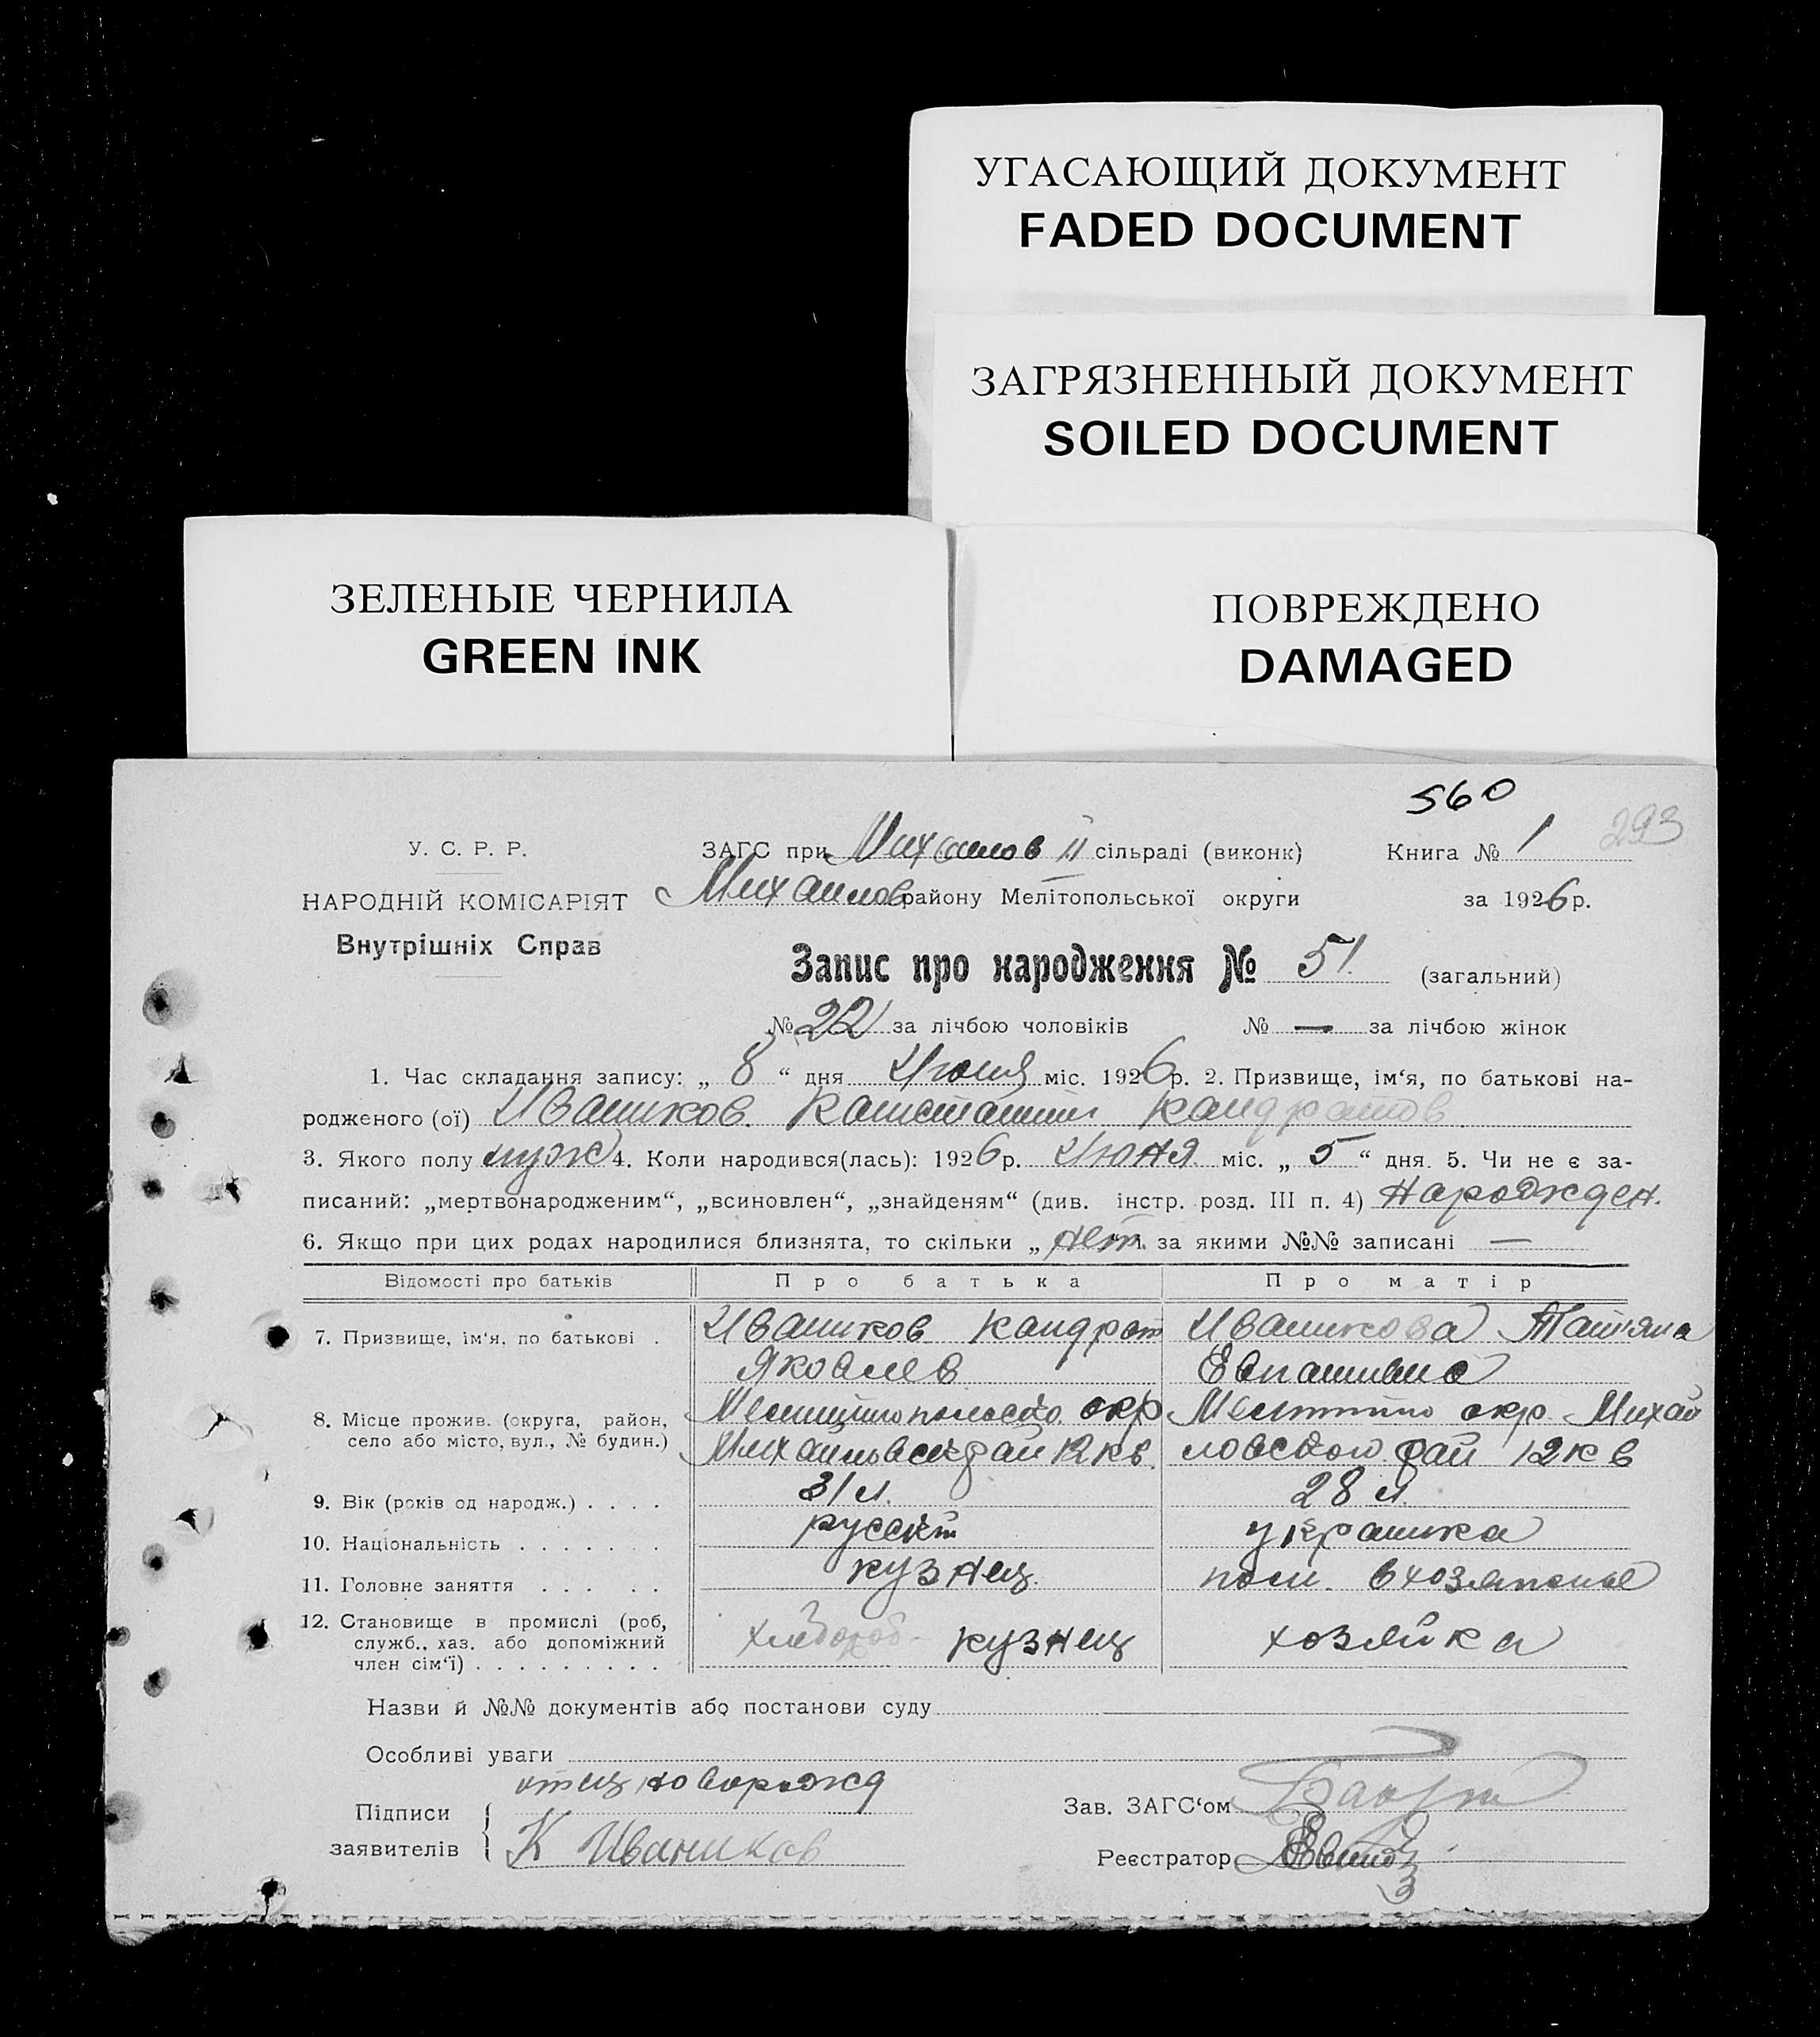 УГАСАЮЩИЙ ДОКУМЕНТ
FADED DOCUMENT
ЗАГРЯЗНЕННЫЙ ДОКУМЕНТ
SOILED DOCUMENT
ЗЕЛЕНЫЕ ЧЕРНИЛА
GREEN INK
ПОВРЕЖДЕНО
DAMAGED
560
293
У. С. Р. Р.
НАРОДНІЙ КОМІСАРІЯТ
Внутрішніх Справ
ЗАГС при Михайлов II сільраді (виконк) Книга № 1
Михайлов району Мелітопольської округи за 1926 р.
Запис про народження № 51 (загальний)
№ 22 за лічбою чоловіків № — за лічбою жінок
1. Час складання запису: „ 8 “ дня Июня міс. 1926 р. 2. Призвище, ім‘я, по батькові на-
родженого (ої) Иваников Канстантин Кандратов
3. Якого полу муж 4. Коли народився(лась): 1926 р. Июня міс. „ 5 “ дня. 5. Чи не є за-
писаний: „мертвонародженим“, „всиновлен“, „знайденям“ (див. інстр. розд. III п. 4) Народжден.
6. Якщо при цих родах народилися близнята, то скільки „ нет за якими №№ записані —
Відомості про батьків Про батька Про матір
7. Призвище, ім‘я, по батькові . Иваников Кандрат Иваникова Татіяна
Яковлев
8. Місце прожив. (округа, район, окр окр Михай
село або місто, вул., № будин.) 12 кв. ловского рай 12 кв
9. Вік (років од народж.) . . . . 31 л. 28 л.
10. Національність . . . . . . . русский украинка
11. Головне заняття . . . . . кузнец. пом. в хозяйстве
12. Становище в промислі (роб, хлебороб- кузнец хозяйка
служб., хаз. або допоміжний
член сім‘ї) . . . . . . . . .
Назви й №№ документів або постанови суду
Особливі уваги
отец новорожд
Підписи
заявителів К Иваников
Зав. ЗАГС‘ом
Реєстратор